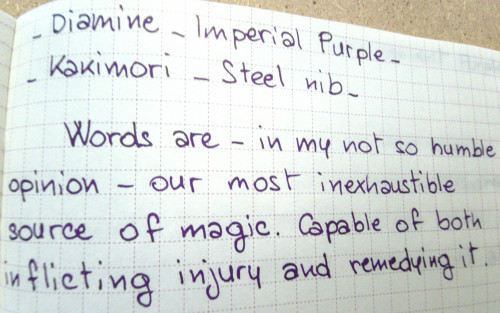 - Diamine - Imperial Purple -
- Kakimori - Steel nib -
Words are - in my not so humble
opinion - our most inexhaustible
source of magic. Capable of both
inflicting injury and remedying it.